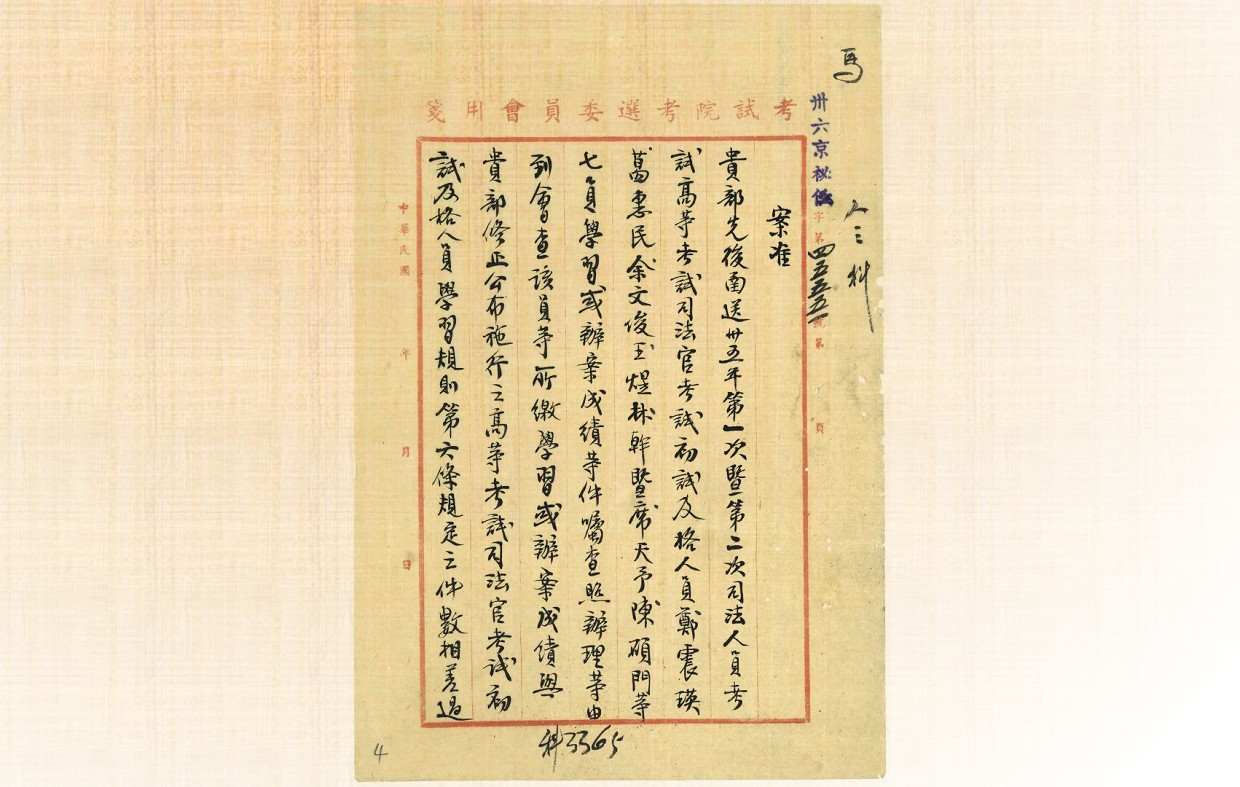 考試院考選委員會用箋
馬
卅六京秘
字第四五五五號第 頁
人三科
案准
貴部先後函送卅五年第一次暨第二次司法人員考
試高等考試司法官考試初試及格人員鄭震瑛
葛惠民余文俊王焜林幹暨席天予陳碩門等
七員學習或辦案成績等件囑查照辦理等由
到會查該員等所繳學習或辦案成績與
貴部修正公布施行之高等考試司法官考試初
試及格人員學習規則第六條規定之件數相差過
中華民國 年 月 日
科3365
4